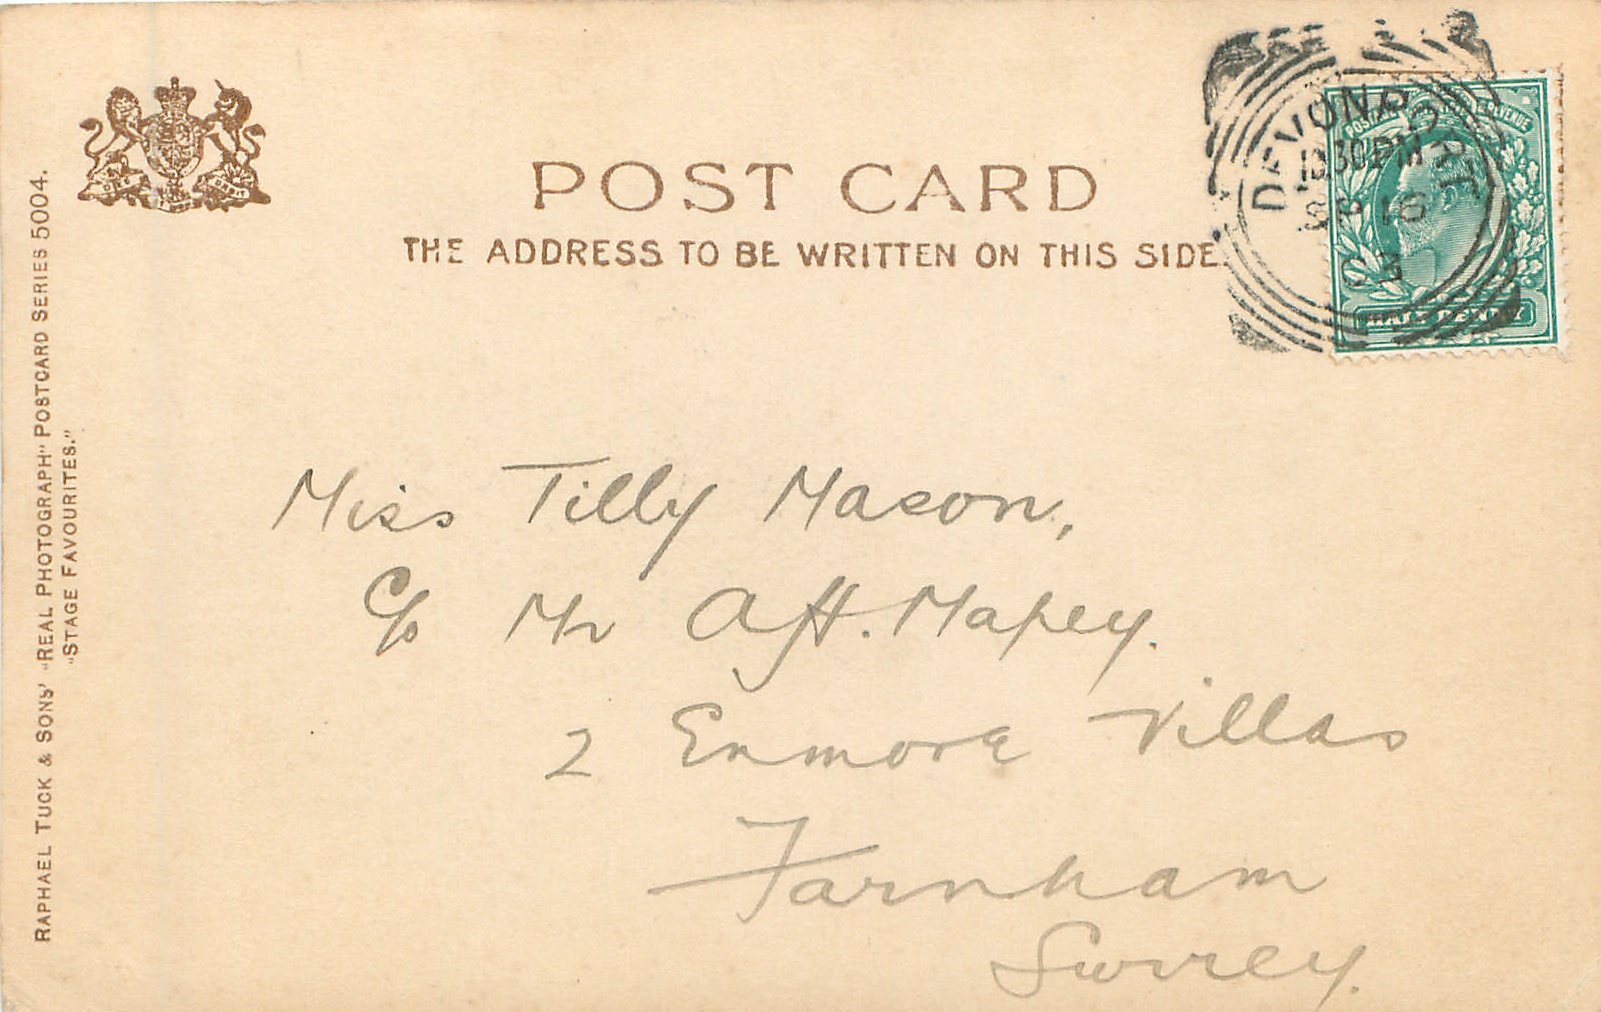 POST CARD
THE ADDRESS TO BE WRITTEN ON THIS SIDE.
DEVONPORT
12 30 PM
SP 16
03
POSTAGE & REVENUE
HALF PENNY
Miss Tilly Mason,
c/o Mr
2 Enmore Villas
Farnham
Surrey.
RAPHAEL TUCK & SONS' "REAL PHOTOGRAPH" POSTCARD SERIES 5004.
"STAGE FAVOURITES."